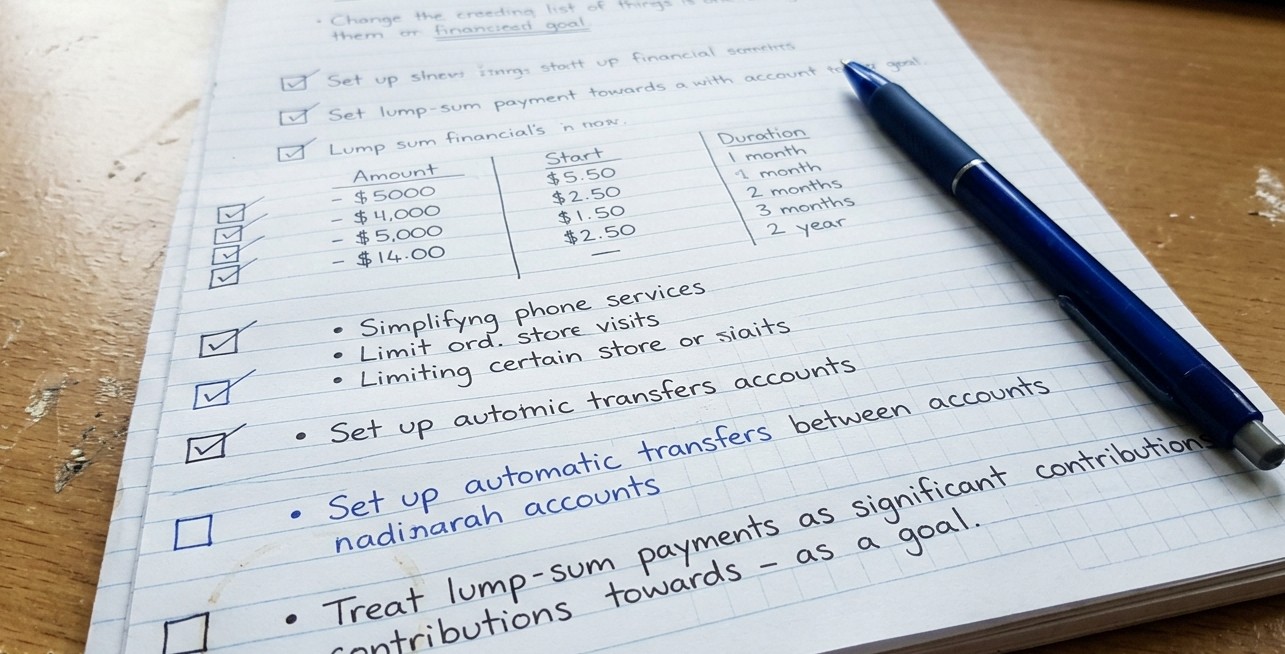 • Change the creeding list of things is
them or financieed goal
Set up start up financial
Set lump-sum payment towards a with account goal.
Lump sum financial's n now.
Amount Start Duration
- $5000 $5.50 1 month
- $4,000 $2.50 1 month
- $5,000 $1.50 2 months
- $14.00 $2.50 3 months
— 2 year
• Simplifyng phone services
• Limit ord. store visits
• Limiting certain store or siaits
• Set up automic transfers accounts
• Set up automatic transfers between accounts
nadinarah accounts
• Treat lump-sum payments as significant contributions
contributions towards – as a goal.